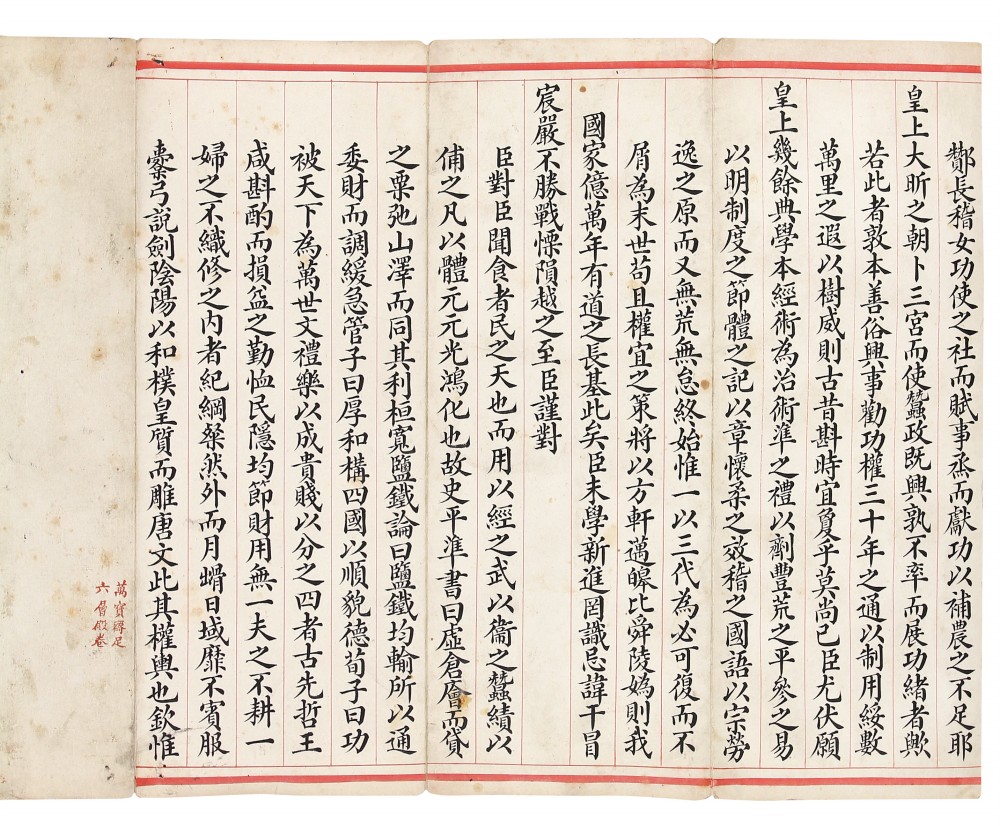 酇長稽女功使之社而賦事烝而獻功以補農之不足耶
皇上大昕之朝卜三宮而使蠶政既興孰不率而展功緒者歟
若此者敦本善俗興事勸功權三十年之通以制用綏數
萬里之遐以樹威則古昔斟時宜敻乎莫尚已臣尤伏願
皇上幾餘典學本經術為治術準之禮以劑豐荒之平參之易
以明制度之節體之記以章懷柔之效稽之國語以宗勞
逸之原而又無荒無怠終始惟一以三代為必可復而不
屑為末世苟且權宜之策將以方軒邁皞比舜陵媯則我
國家億萬年有道之長基此矣臣末學新進罔識忌諱干冒
宸嚴不勝戰慄隕越之至臣謹對
臣對臣聞食者民之天也而用以經之武以衞之蠶績以
俌之凡以體元元光鴻化也故史平準書曰虛倉廥而貸
之粟弛山澤而同其利桓寬鹽鐵論曰鹽鐵均輸所以通
委財而調緩急管子曰厚和構四國以順貌德荀子曰功
被天下為萬世文禮樂以成貴賤以分之四者古先哲王
咸斟酌而損益之勤恤民隱均節財用無一夫之不耕一
婦之不織修之内者紀綱粲然外而月䗖日域靡不賓服
櫜弓說劍陰陽以和樸皇質而雕唐文此其權輿也欽惟
萬寶
六
卷